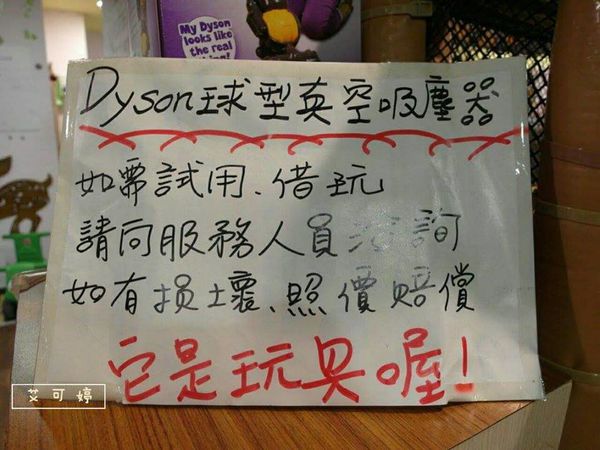 My Dyson
looks like
the real
Dyson球型真空吸塵器
如需試用、借玩
請向服務人員洽詢
如有損壞、照價賠償
它是玩具喔!
艾可婷